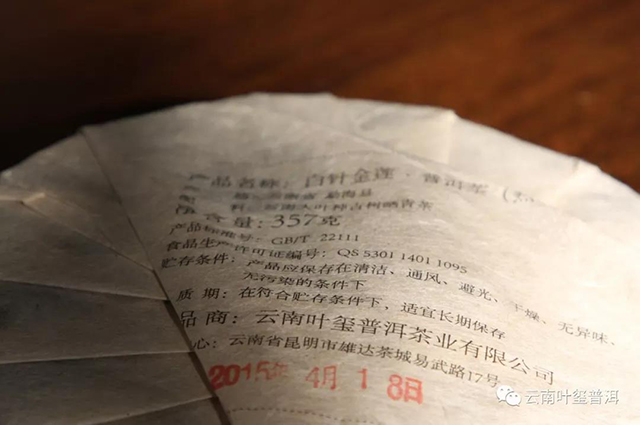 产品名称：白针金莲·普洱茶（
云南省 勐海县
料：云南大叶种古树晒青茶
净含量：357克
产品标准号：GB/T 22111
食品生产许可证编号：QS 5301 1401 1095
贮存条件：产品应保存在清洁、通风、避光、干燥、无异味、
无污染的条件下
质 期：在符合贮存条件下，适宜长期保存
品商：云南叶玺普洱茶业有限公司
心：云南省昆明市雄达茶城易武路17号
2015年 4月 18日
云南叶玺普洱